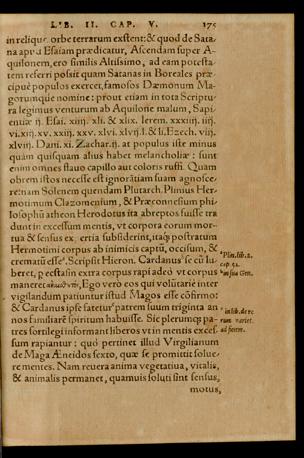 LIB. II. CAP. V. 175
in reliquo orbe terrarum exstent: & quod de Sata-
na apud Esaiam prædicatur, Ascendam super A-
quilonem, ero similis Altissimo, ad eam potesta-
tem referri possit quam Satanas in Boreales præ-
cipuè populos exercet, famosos Dæmonum Ma-
gorumque nomine: prout etiam in tota Scriptu-
ra legimus venturum ab Aquilone malum, Sapi-
enuæ ij. Esai. xiiij. xli. & xlix. Ierem. xxxiiij. iiij.
vi. xiij. xv. xxiij. xxv. xlvi. xlvij. l. & li. Ezech. viij.
xlviij. Dani. xi. Zachar. ij. at populus iste minus
quàm quisquam alius habet melancholiæ: sunt
enim omnes flauo capillo aut coloris ruffi. Quam
obrem istos necesse est ignorātiam suam agnosce-
re: nam Solenem quendam Plutarch. Plinius Her-
motimum Clazomenium, & Præconnesium phi-
losophū atheon Herodotus ita abreptos fuisse tra
dunt in excessum mentis, vt corpora eorum mor-
tua & sensus expertia subsiderint, itaq; postratum
Hermotimi corpus ab inimicis captū, occisum, &
crematū esse. Scripsit Hieron. Cardanus se cū lu-
beret, per ecstasin extra corpus rapi adeò vt corpus
maneret Ego verò eos qui volūtariè inter
vigilandum patiuntur istud Magos esse cōfirmo:
& Cardanus ipse fatetur patrem suum triginta an
nos familiarē spiritum habuisse. Sic plerumq; pa-
tres sortilegi informant liberos vt in mentis exces-
sum rapiantur: quò pertinet illud Virgilianum
de Maga Æneidos sexto, quæ se promittit solue-
re mentes. Nam reuera anima vegetatiua, vitalis,
& animalis permanet, quamuis soluti sint sensus,
motus,
Plin. lib. 2.
cap. 52.
in sua Gen.
in lib. de re
rum variet.
ad finem.